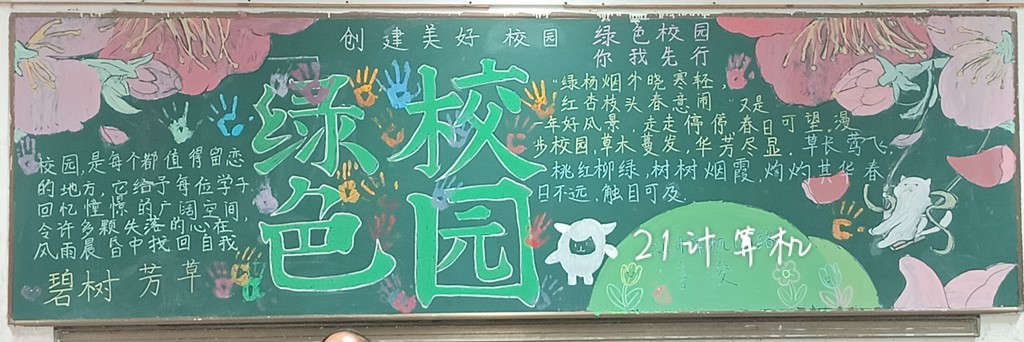 创建美好校园
绿色校园
你我先行
绿色
校园
校园,是每个都值得留恋
的地方,它给予每位学子
回忆憧憬的广阔空间,
令许多颗失落的心在
风雨晨昏中找回自我
碧树芳草
"绿杨烟外晓寒轻,
红杏枝头春意闹"又是
一年好风景,走走停停春日可望,漫
步校园,草木蔓发,华芳尽显,草长莺飞,
桃红柳绿,树树烟霞,灼灼其华春
日不远,触目可及.
21计算机